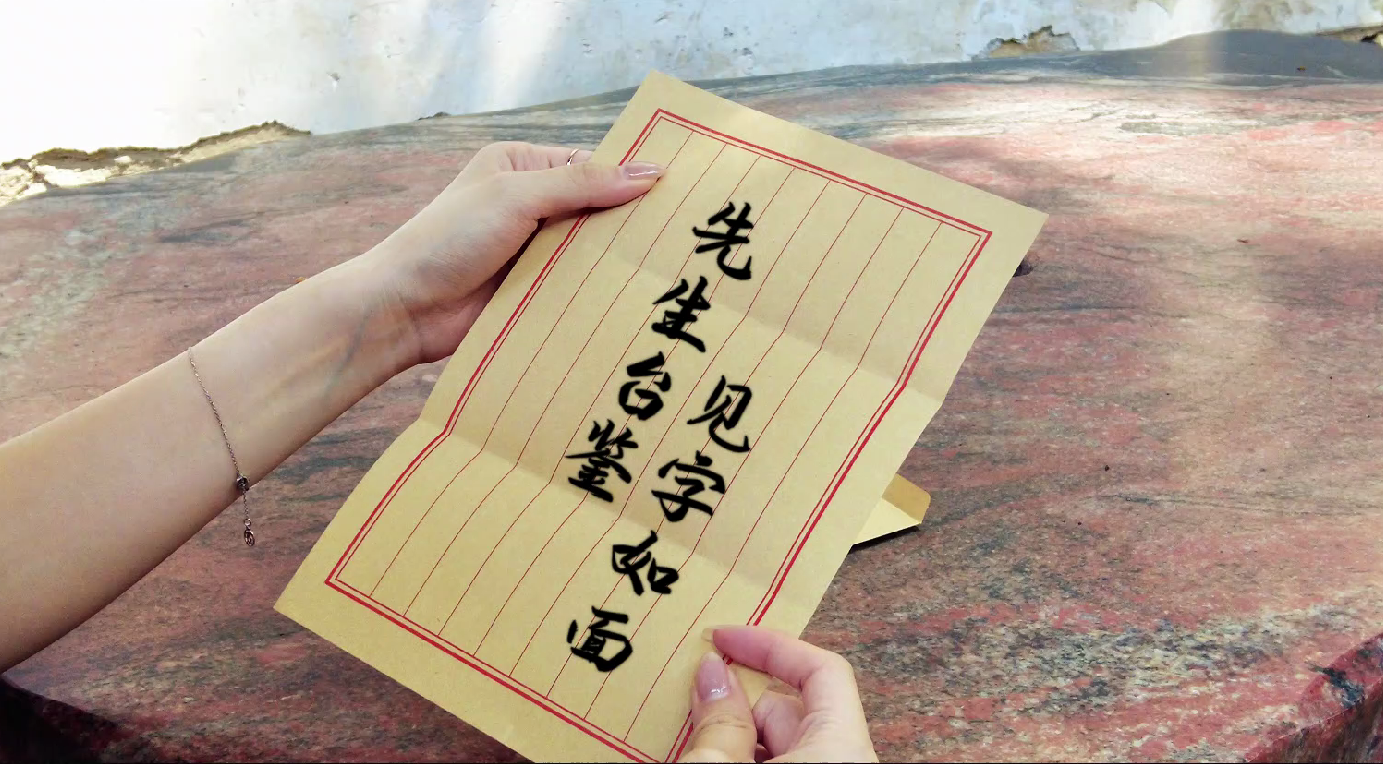 先生台鉴
见字如面